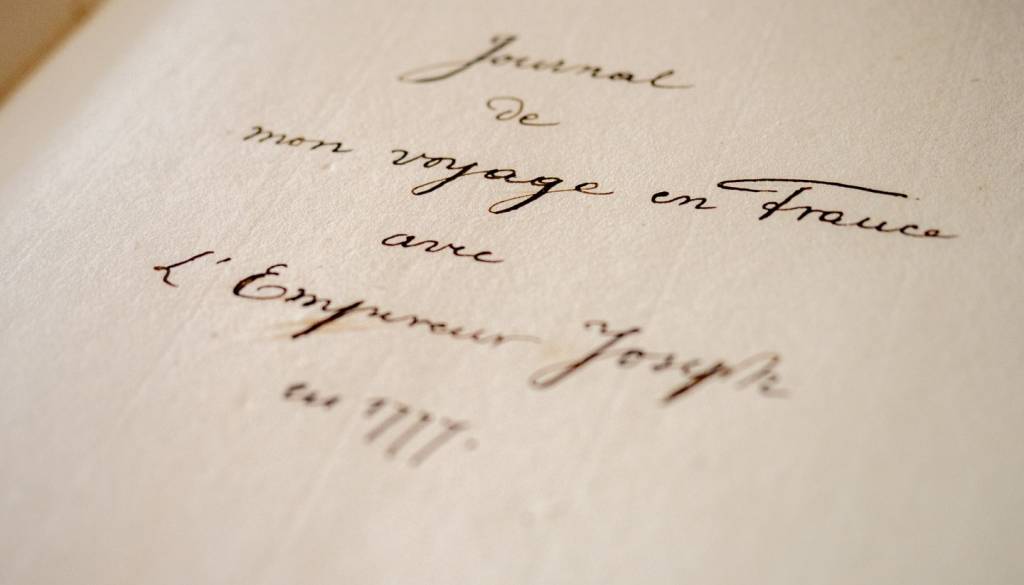 Journal
de
mon voyage en France
avec
L'Empereur Joseph
en 1777.